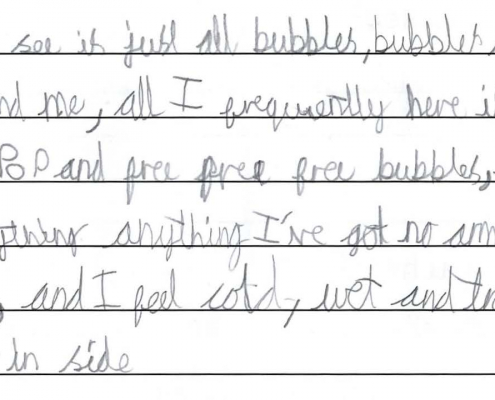 see is just all bubbles, bubbles,
nd me, all I frequently here i
POP and free free free bubbles,
anything I've got no
and I feel cold, wet and
in side